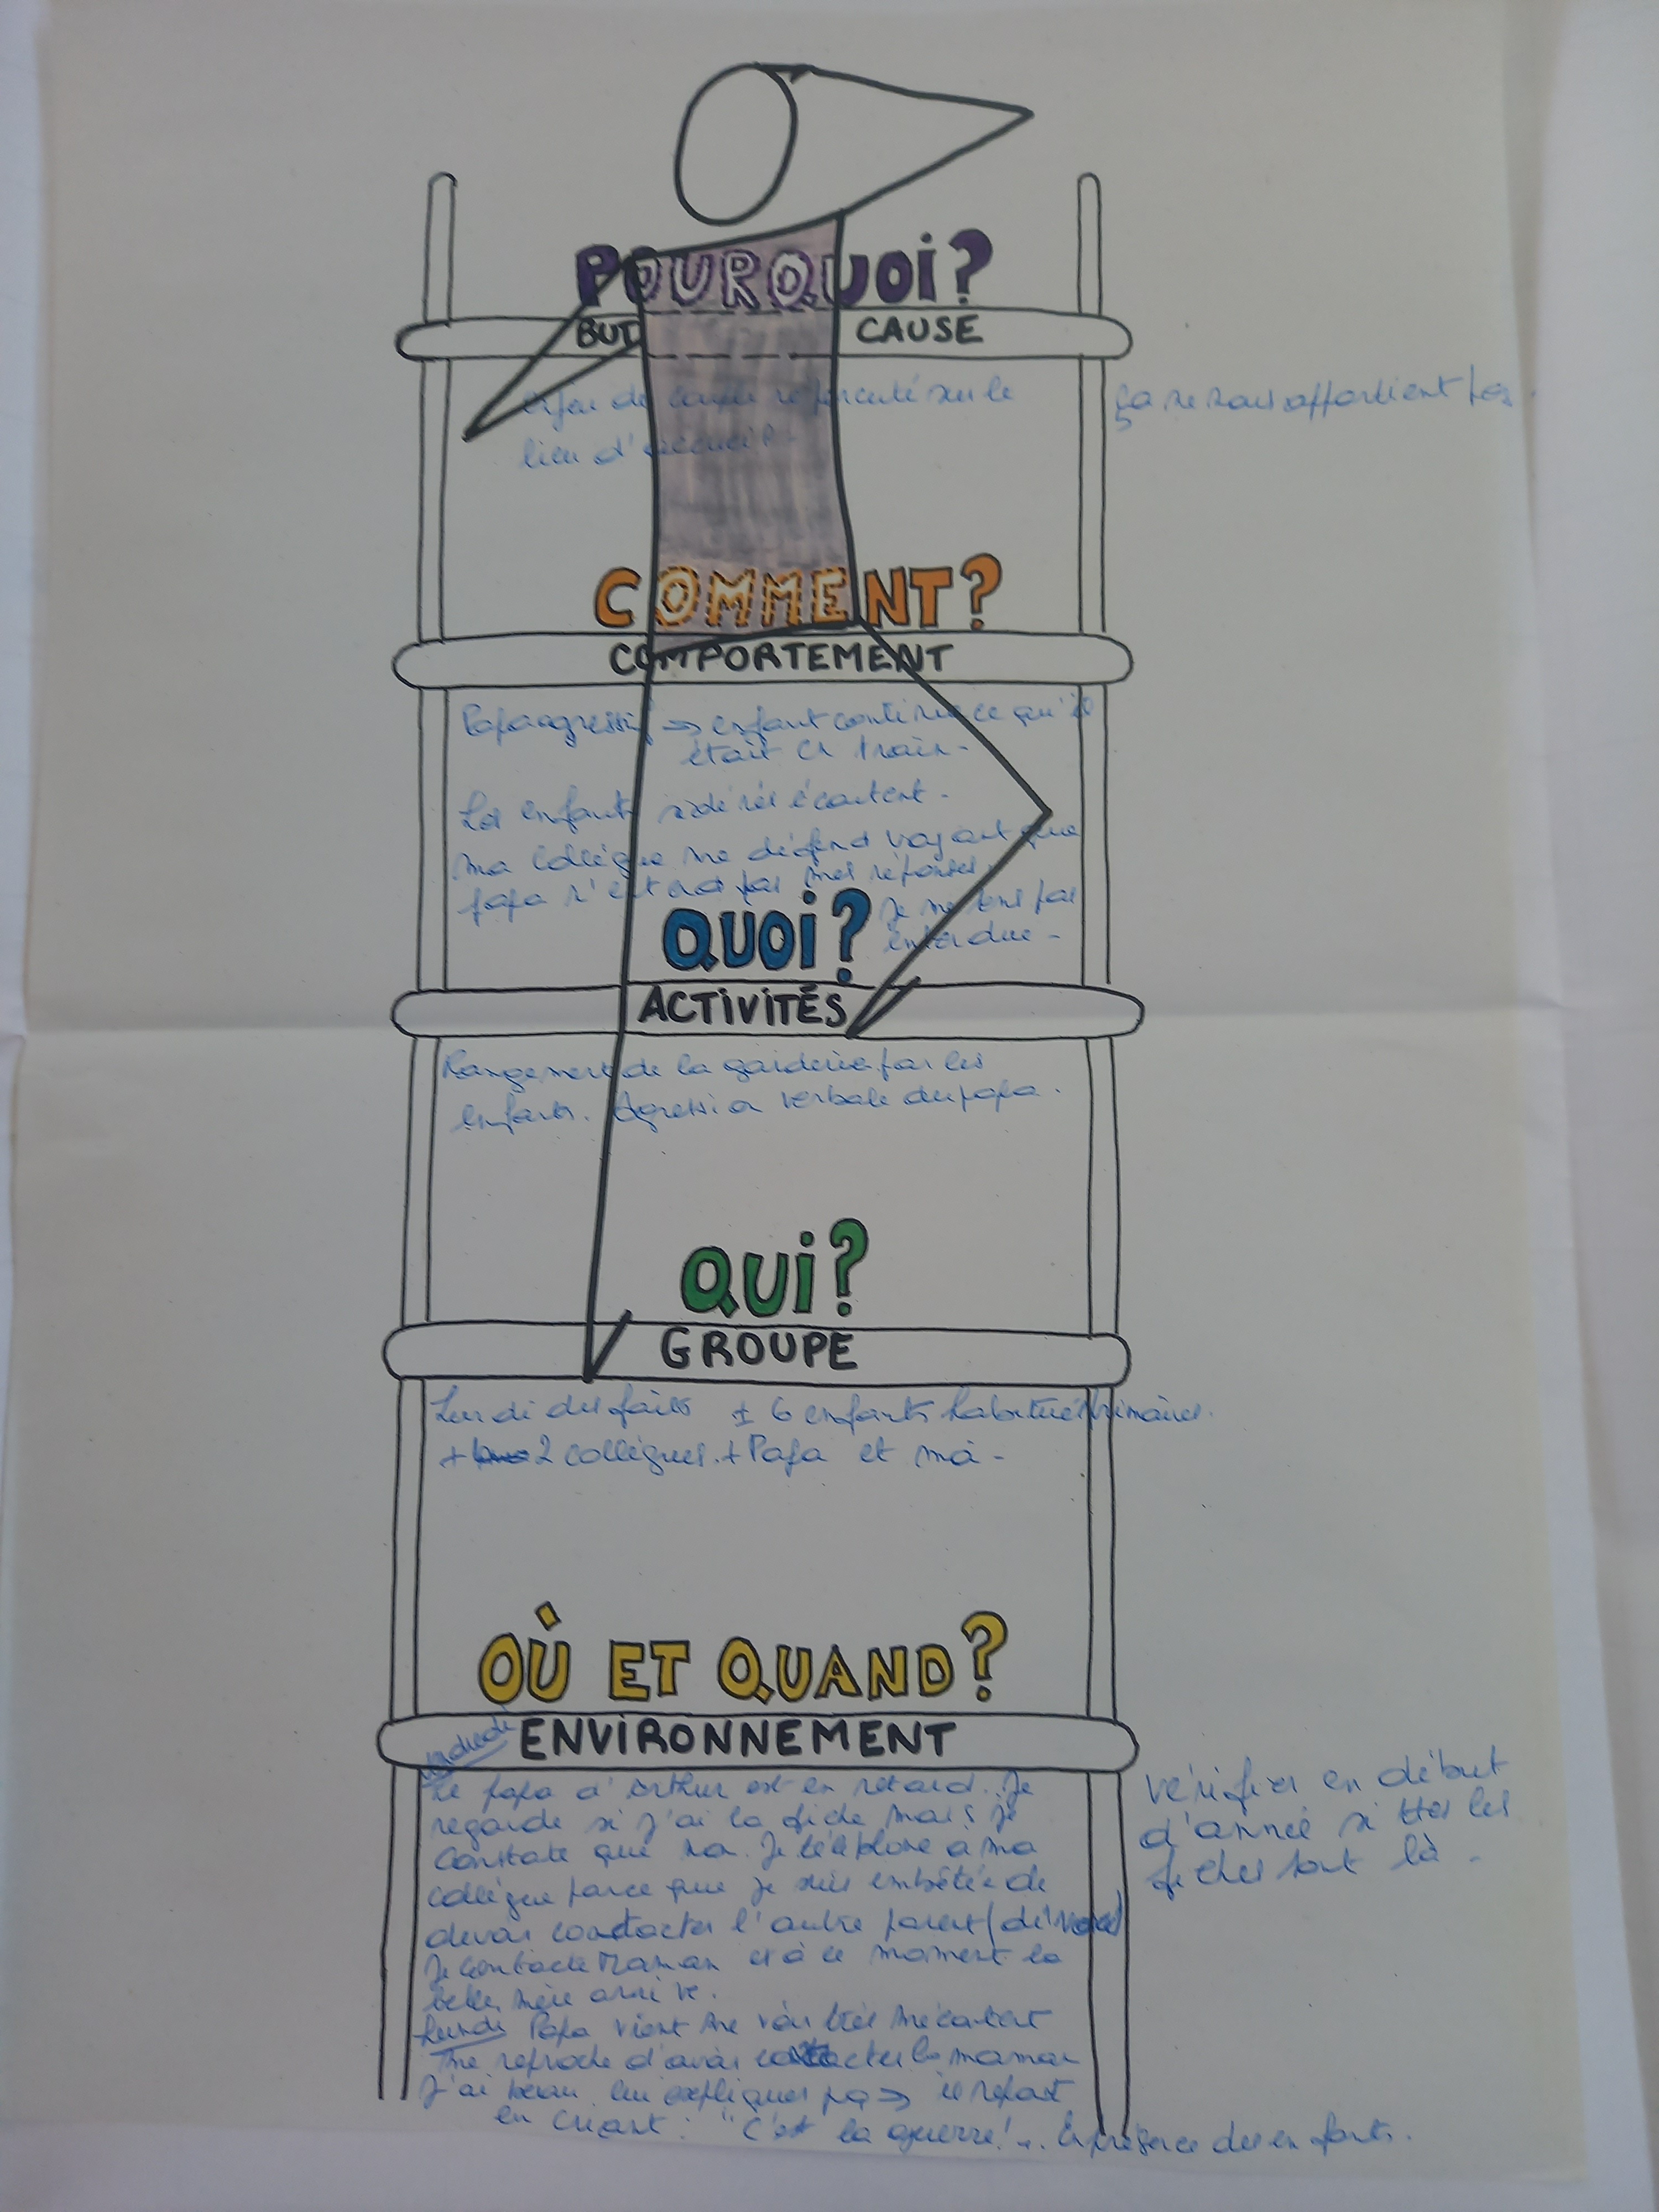 POURQUOI?
BUT CAUSE
enjeu de couple répercuté sur le
lieu d'accueil.
ça ne nous appartient pas.
COMMENT?
COMPORTEMENT
Papa agressif → enfant continue ce qu'il
était en train.
Les enfants sidérés écoutent.
ma collègue me défend voyant que
papa n'entend pas mes réponses.
Je me sens pas
entendue.
QUOI?
ACTIVITÉS
Rangement de la garderie par les
enfants. Agression verbale du papa.
QUI?
GROUPE
Lundi des faits ± 6 enfants habitués primaires.
+ 2 collègues. + Papa et moi.
OÙ ET QUAND?
ENVIRONNEMENT
Vendredi
Le papa d'Arthur est en retard. Je
regarde si j'ai la fiche mais je
constate que non. Je téléphone à ma
collègue parce que je suis embêtée de
devoir contacter l'autre parent (divorce)
Je contacte Maman et à ce moment la
belle mère arrive.
Lundi Papa vient me voir très mécontent
me reproche d'avoir contacter la maman
J'ai beau lui expliquer → il repart
en criant : "C'est la guerre! .. En présence des enfants.
Vérifier en début
d'année si ttes les
fiches sont là.